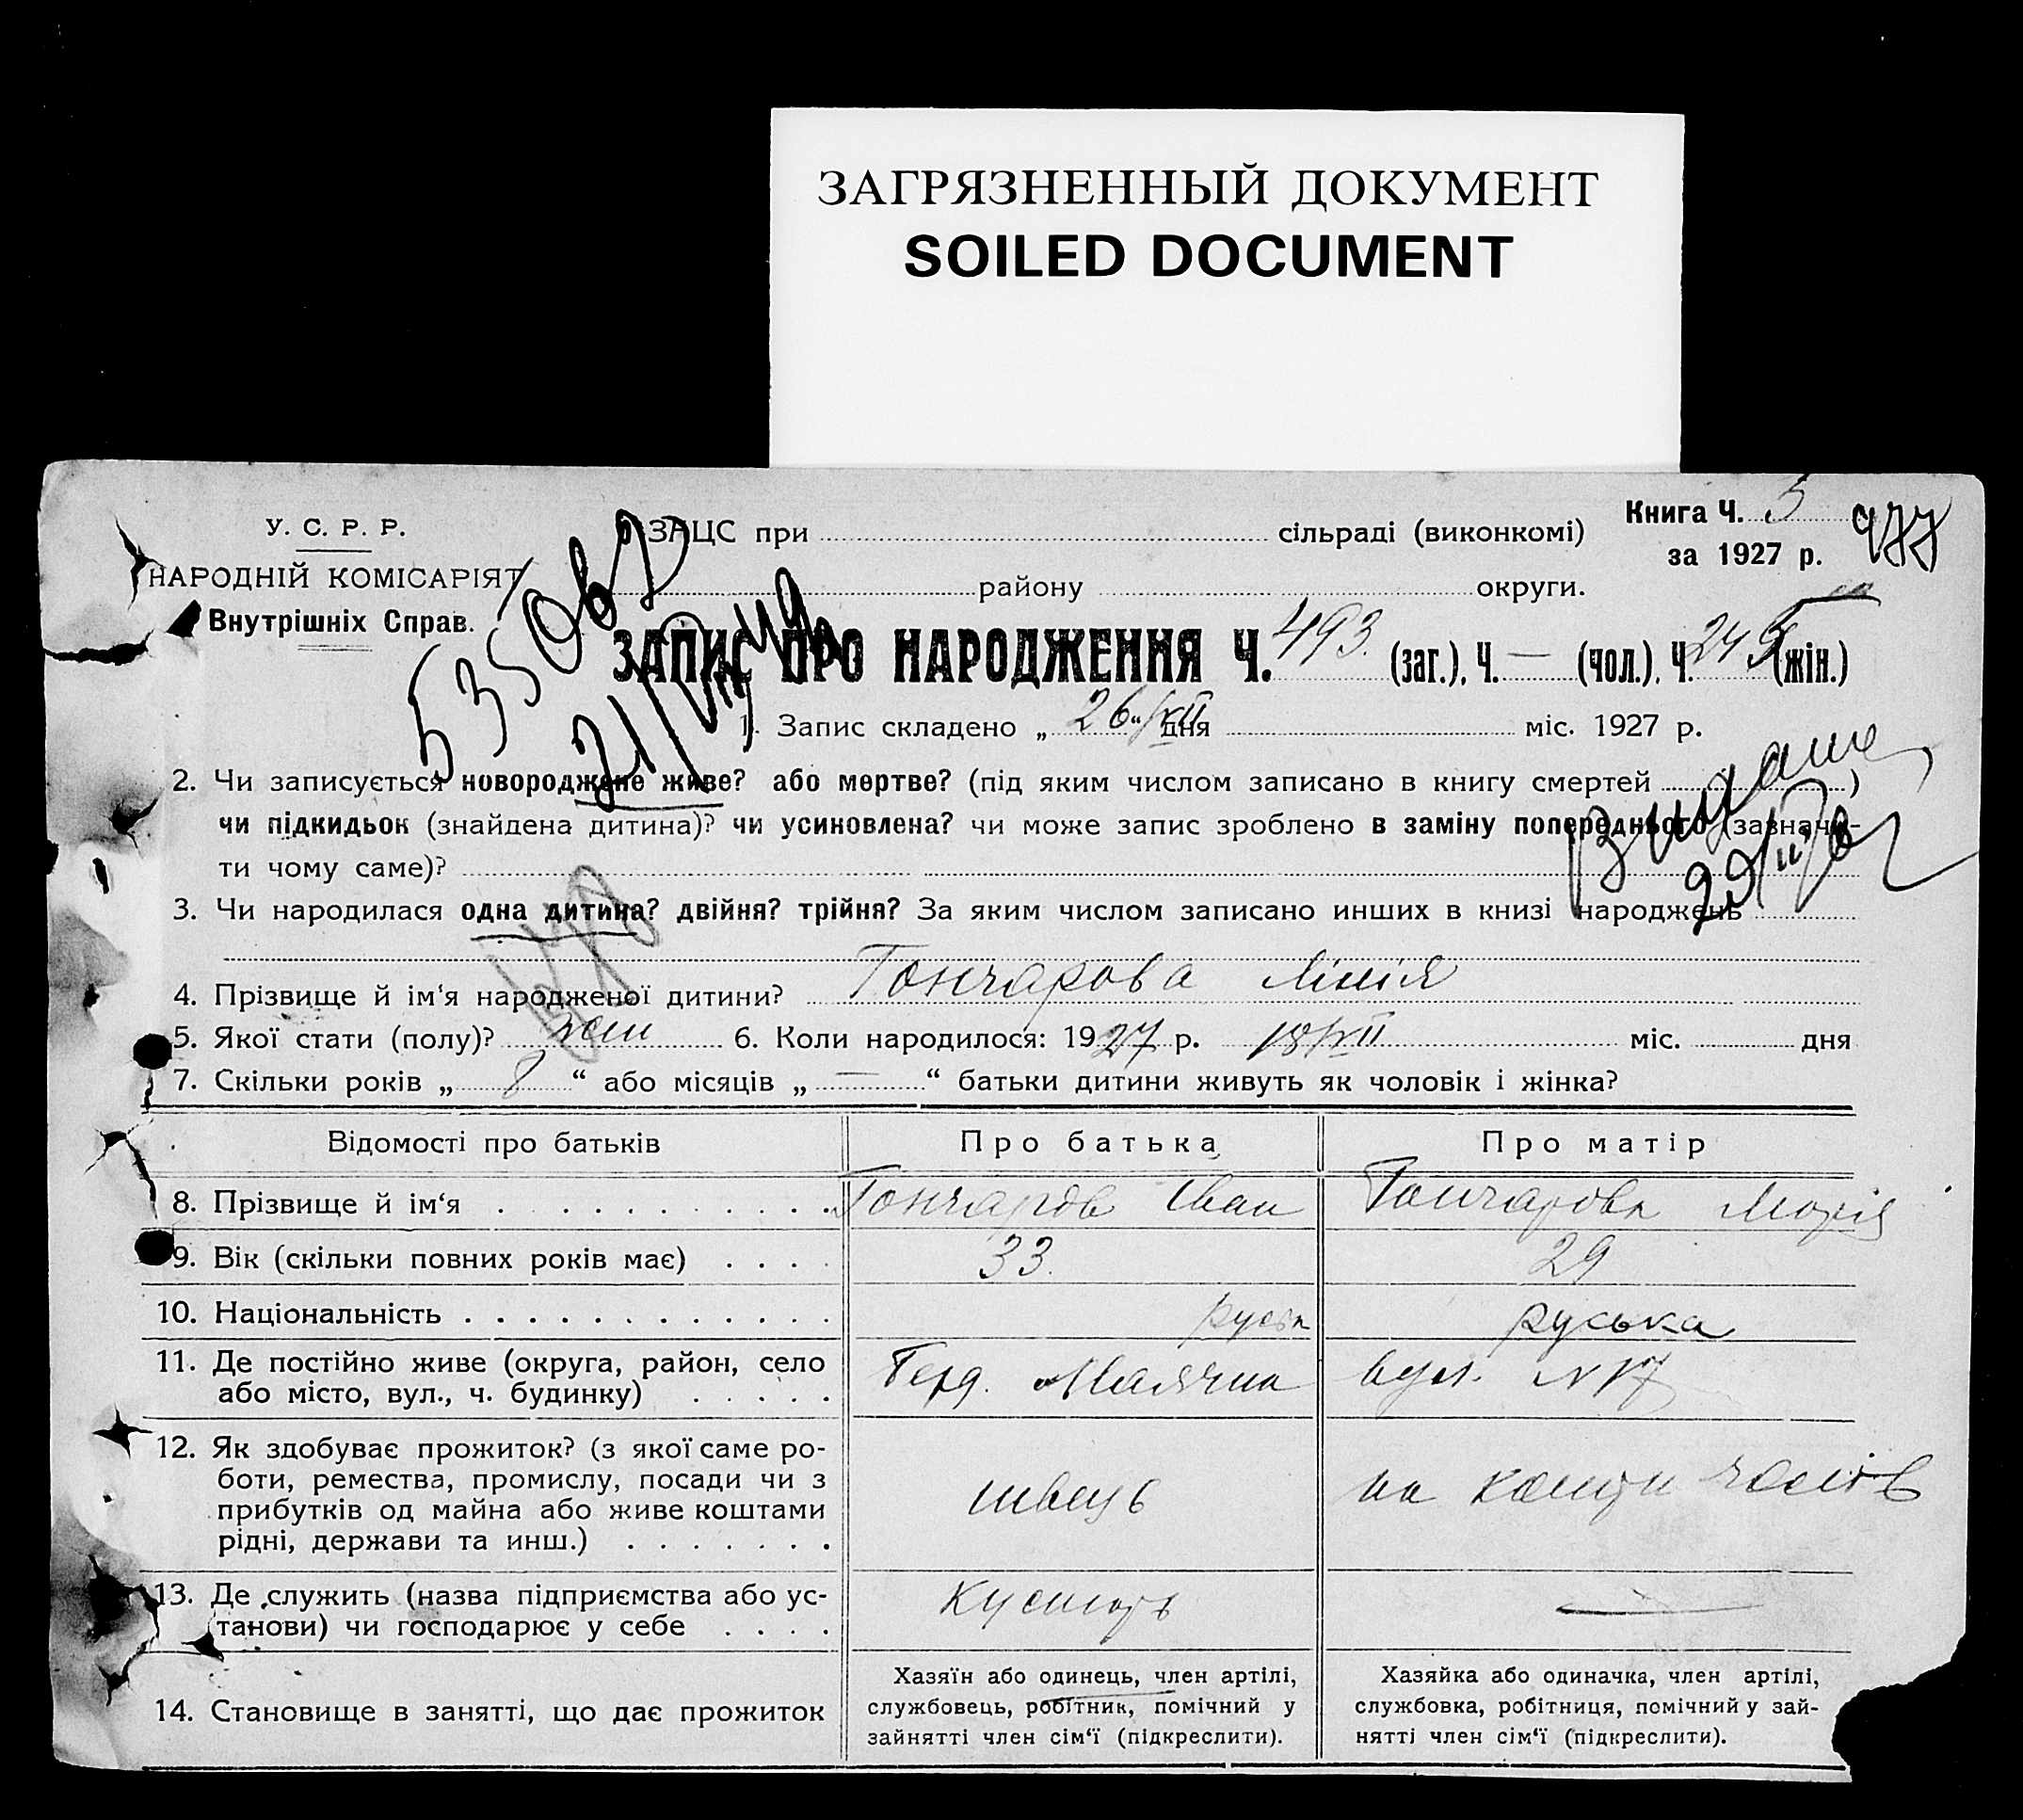 ЗАГРЯЗНЕННЫЙ ДОКУМЕНТ
SOILED DOCUMENT
У. С. Р. Р.
НАРОДНІЙ КОМІСАРІЯТ
Внутрішніх Справ.
ЗАЦС при сільраді (виконкомі)
району округи.
Книга Ч. 5
за 1927 р.
977
535062
ЗАПИС ПРО НАРОДЖЕННЯ Ч. 493. (заг.), Ч. — (чол.), Ч. 245 (жін.)
1. Запис складено „ 26 “/XII дня міс. 1927 р.
2. Чи записується новороджене живе? або мертве? (під яким числом записано в книгу смертей )
чи підкидьок (знайдена дитина)? чи усиновлена? чи може запис зроблено в заміну попереднього (зазначи-
ти чому саме)?
3. Чи народилася одна дитина? двійня? трійня? За яким числом записано инших в книзі народжень
4. Прізвище й ім‘я народженої дитини? Гончарова Лілія
5. Якої стати (полу)? жін 6. Коли народилося: 1927 р. 18/XII міс. дня
7. Скільки років „ 8 “ або місяців „ — “ батьки дитини живуть як чоловік і жінка?
Відомості про батьків Про батька Про матір
8. Прізвище й ім‘я Гончаров Іван Гончарова Марія
9. Вік (скільки повних років має) 33. 29
10. Національність руськ руська
11. Де постійно живе (округа, район, село
або місто, вул., ч. будинку)
вул. N 17
12. Як здобуває прожиток? (з якої саме ро-
боти, ремества, промислу, посади чи з
прибутків од майна або живе коштами
рідні, держави та инш.)
швець
на кошти чолов
13. Де служить (назва підприємства або ус-
танови) чи господарює у себе
кустарь —
14. Становище в занятті, що дає прожиток
Хазяїн або одинець, член артілі,
службовець, робітник, помічний у
зайнятті член сім‘ї (підкреслити).
Хазяйка або одиначка, член артілі,
службовка, робітниця, помічний у зай-
нятті член сім‘ї (підкреслити).